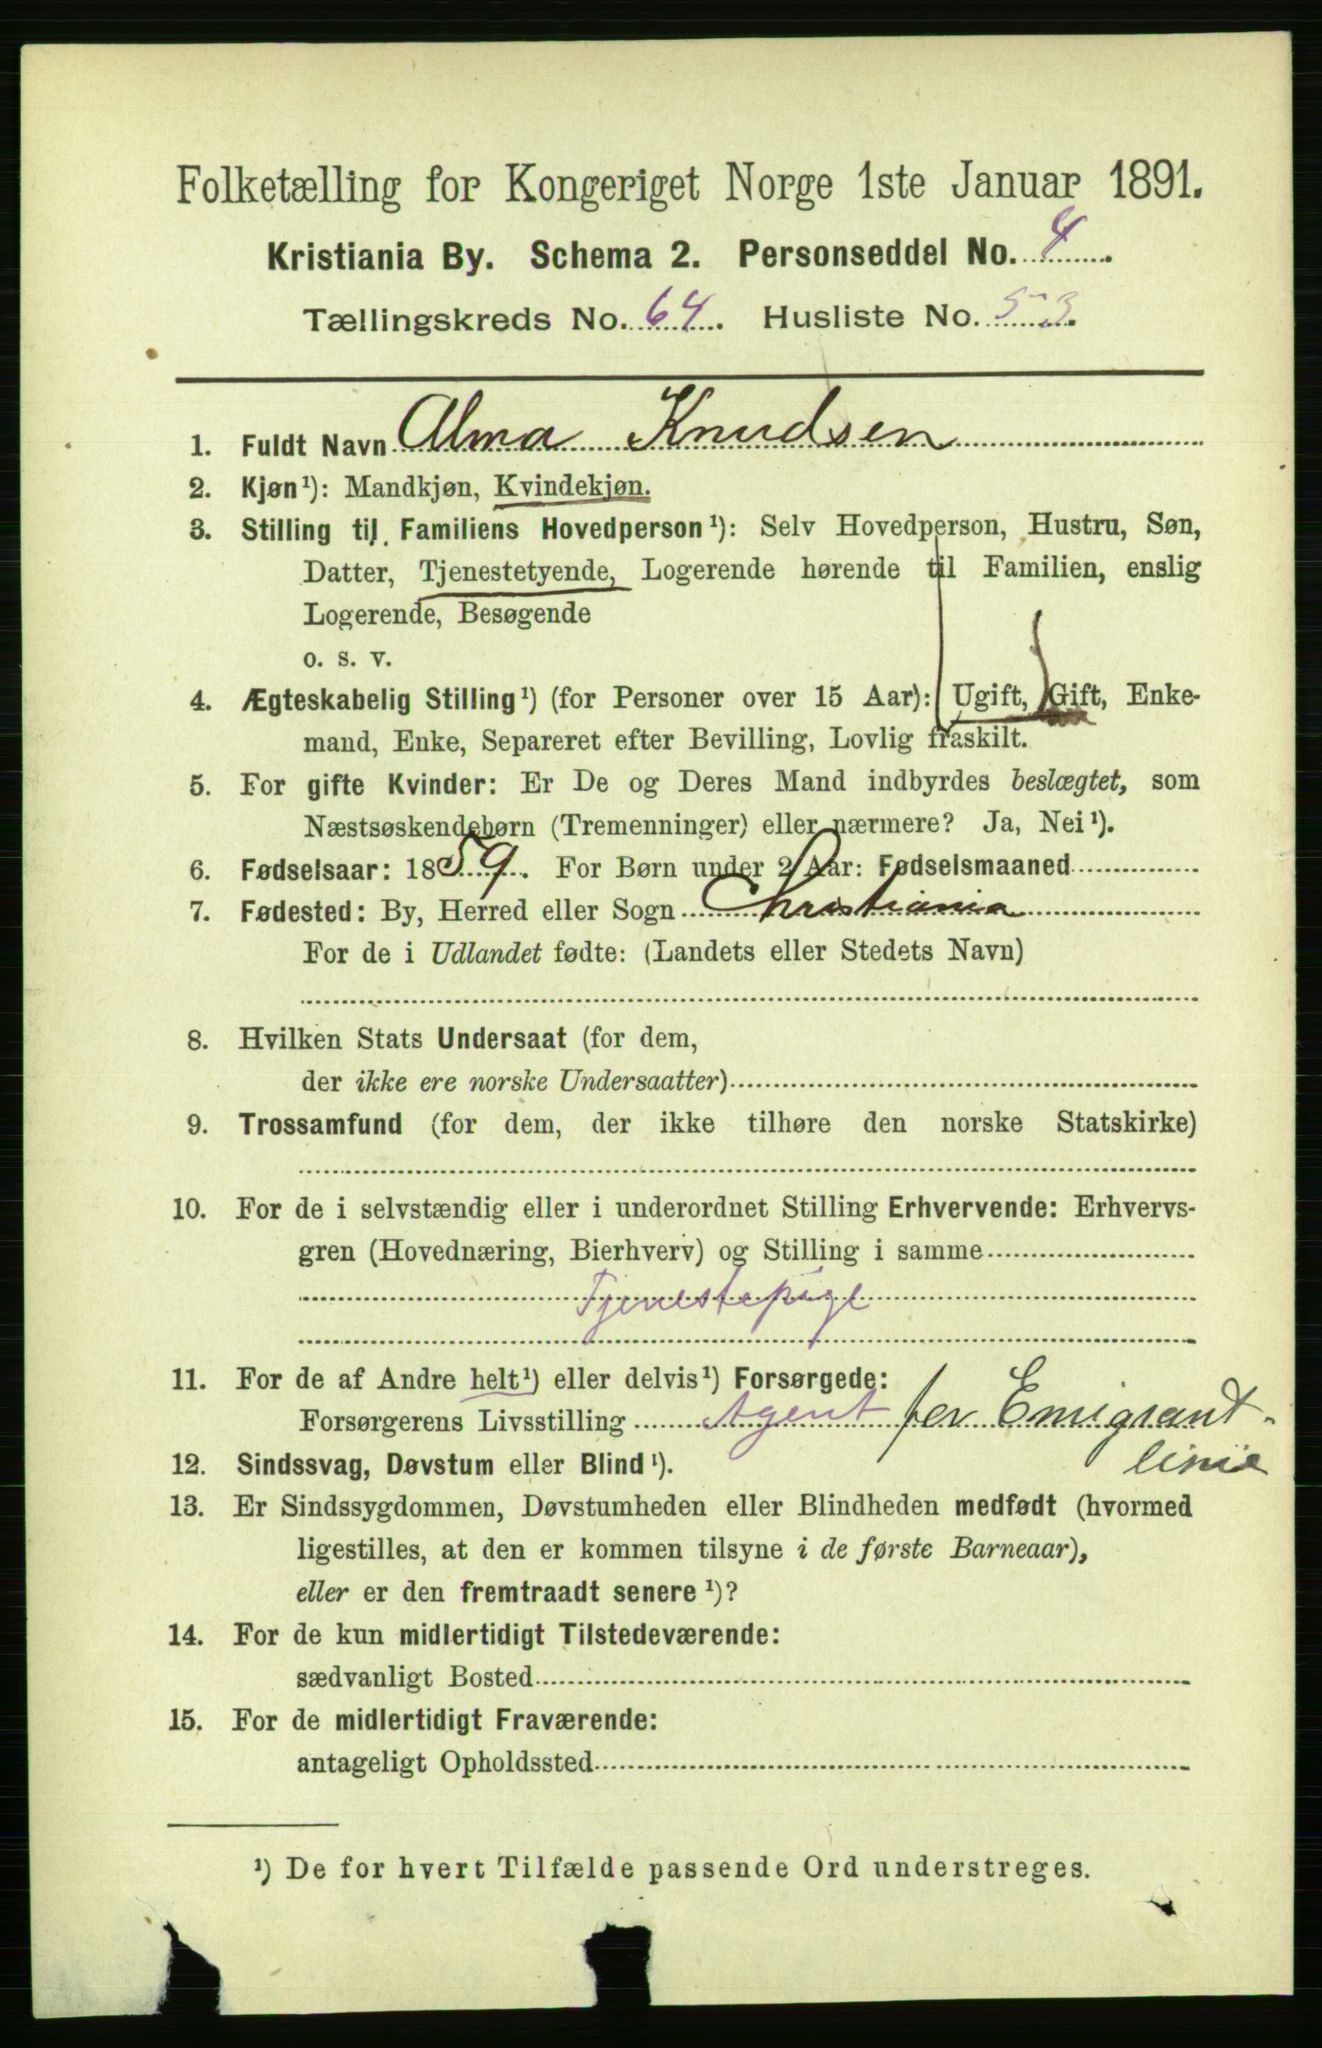 Folketælling for Kongeriget Norge 1ste Januar 1891.
Kristiania By. Schema 2. Personseddel No. 4.
Tællingskreds No. 64. Husliste No. 53.
1. Fuldt Navn Alma Knudsen
2. Kjøn¹): Mandkjøn, Kvindekjøn.
3. Stilling til Familiens Hovedperson¹): Selv Hovedperson, Hustru, Søn,
Datter, Tjenestetyende, Logerende hørende til Familien, enslig
Logerende, Besøgende
o. s. v.
4. Ægteskabelig Stilling¹) (for Personer over 15 Aar): Ugift, Gift, Enke-
mand, Enke, Separeret efter Bevilling, Lovlig fraskilt.
5. For gifte Kvinder: Er De og Deres Mand indbyrdes beslægtet, som
Næstsøskendebørn (Tremenninger) eller nærmere? Ja, Nei¹).
6. Fødselsaar: 1859. For Børn under 2 Aar: Fødselsmaaned
7. Fødested: By, Herred eller Sogn Christiania
For de i Udlandet fødte: (Landets eller Stedets Navn)
8. Hvilken Stats Undersaat (for dem,
der ikke ere norske Undersaatter)
9. Trossamfund (for dem, der ikke tilhøre den norske Statskirke)
10. For de i selvstændig eller i underordnet Stilling Erhvervende: Erhvervs-
gren (Hovednæring, Bierhverv) og Stilling i samme
Tjenestepige
11. For de af Andre helt¹) eller delvis¹) Forsørgede:
Forsørgerens Livsstilling Agent for Emigrant-
linie
12. Sindssvag, Døvstum eller Blind¹).
13. Er Sindssygdommen, Døvstumheden eller Blindheden medfødt (hvormed
ligestilles, at den er kommen tilsyne i de første Barneaar),
eller er den fremtraadt senere¹)?
14. For de kun midlertidigt Tilstedeværende:
sædvanligt Bosted
15. For de midlertidigt Fraværende:
antageligt Opholdssted
¹) De for hvert Tilfælde passende Ord understreges.